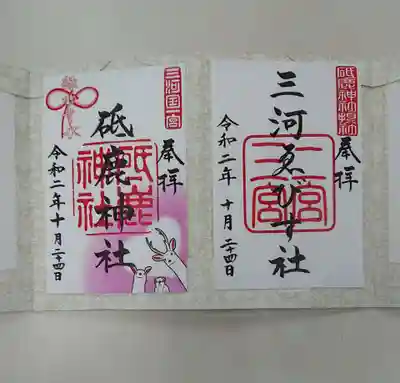 砥鹿神社摂社
奉拝
三河ゑびす社
二宮
三宮
令和二年 十月二十四日
三河国一宮
奉拝
砥鹿神社
砥鹿
神社
令和二年十月二十四日